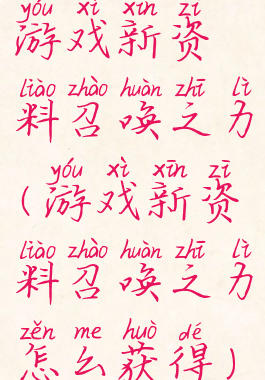 yóu xì xīn zī
游戏新资
liào zhào huàn zhī lì
料召唤之力
yóu xì xīn zī
(游戏新资
liào zhào huàn zhī lì
料召唤之力
zěn me huò dé
怎么获得)